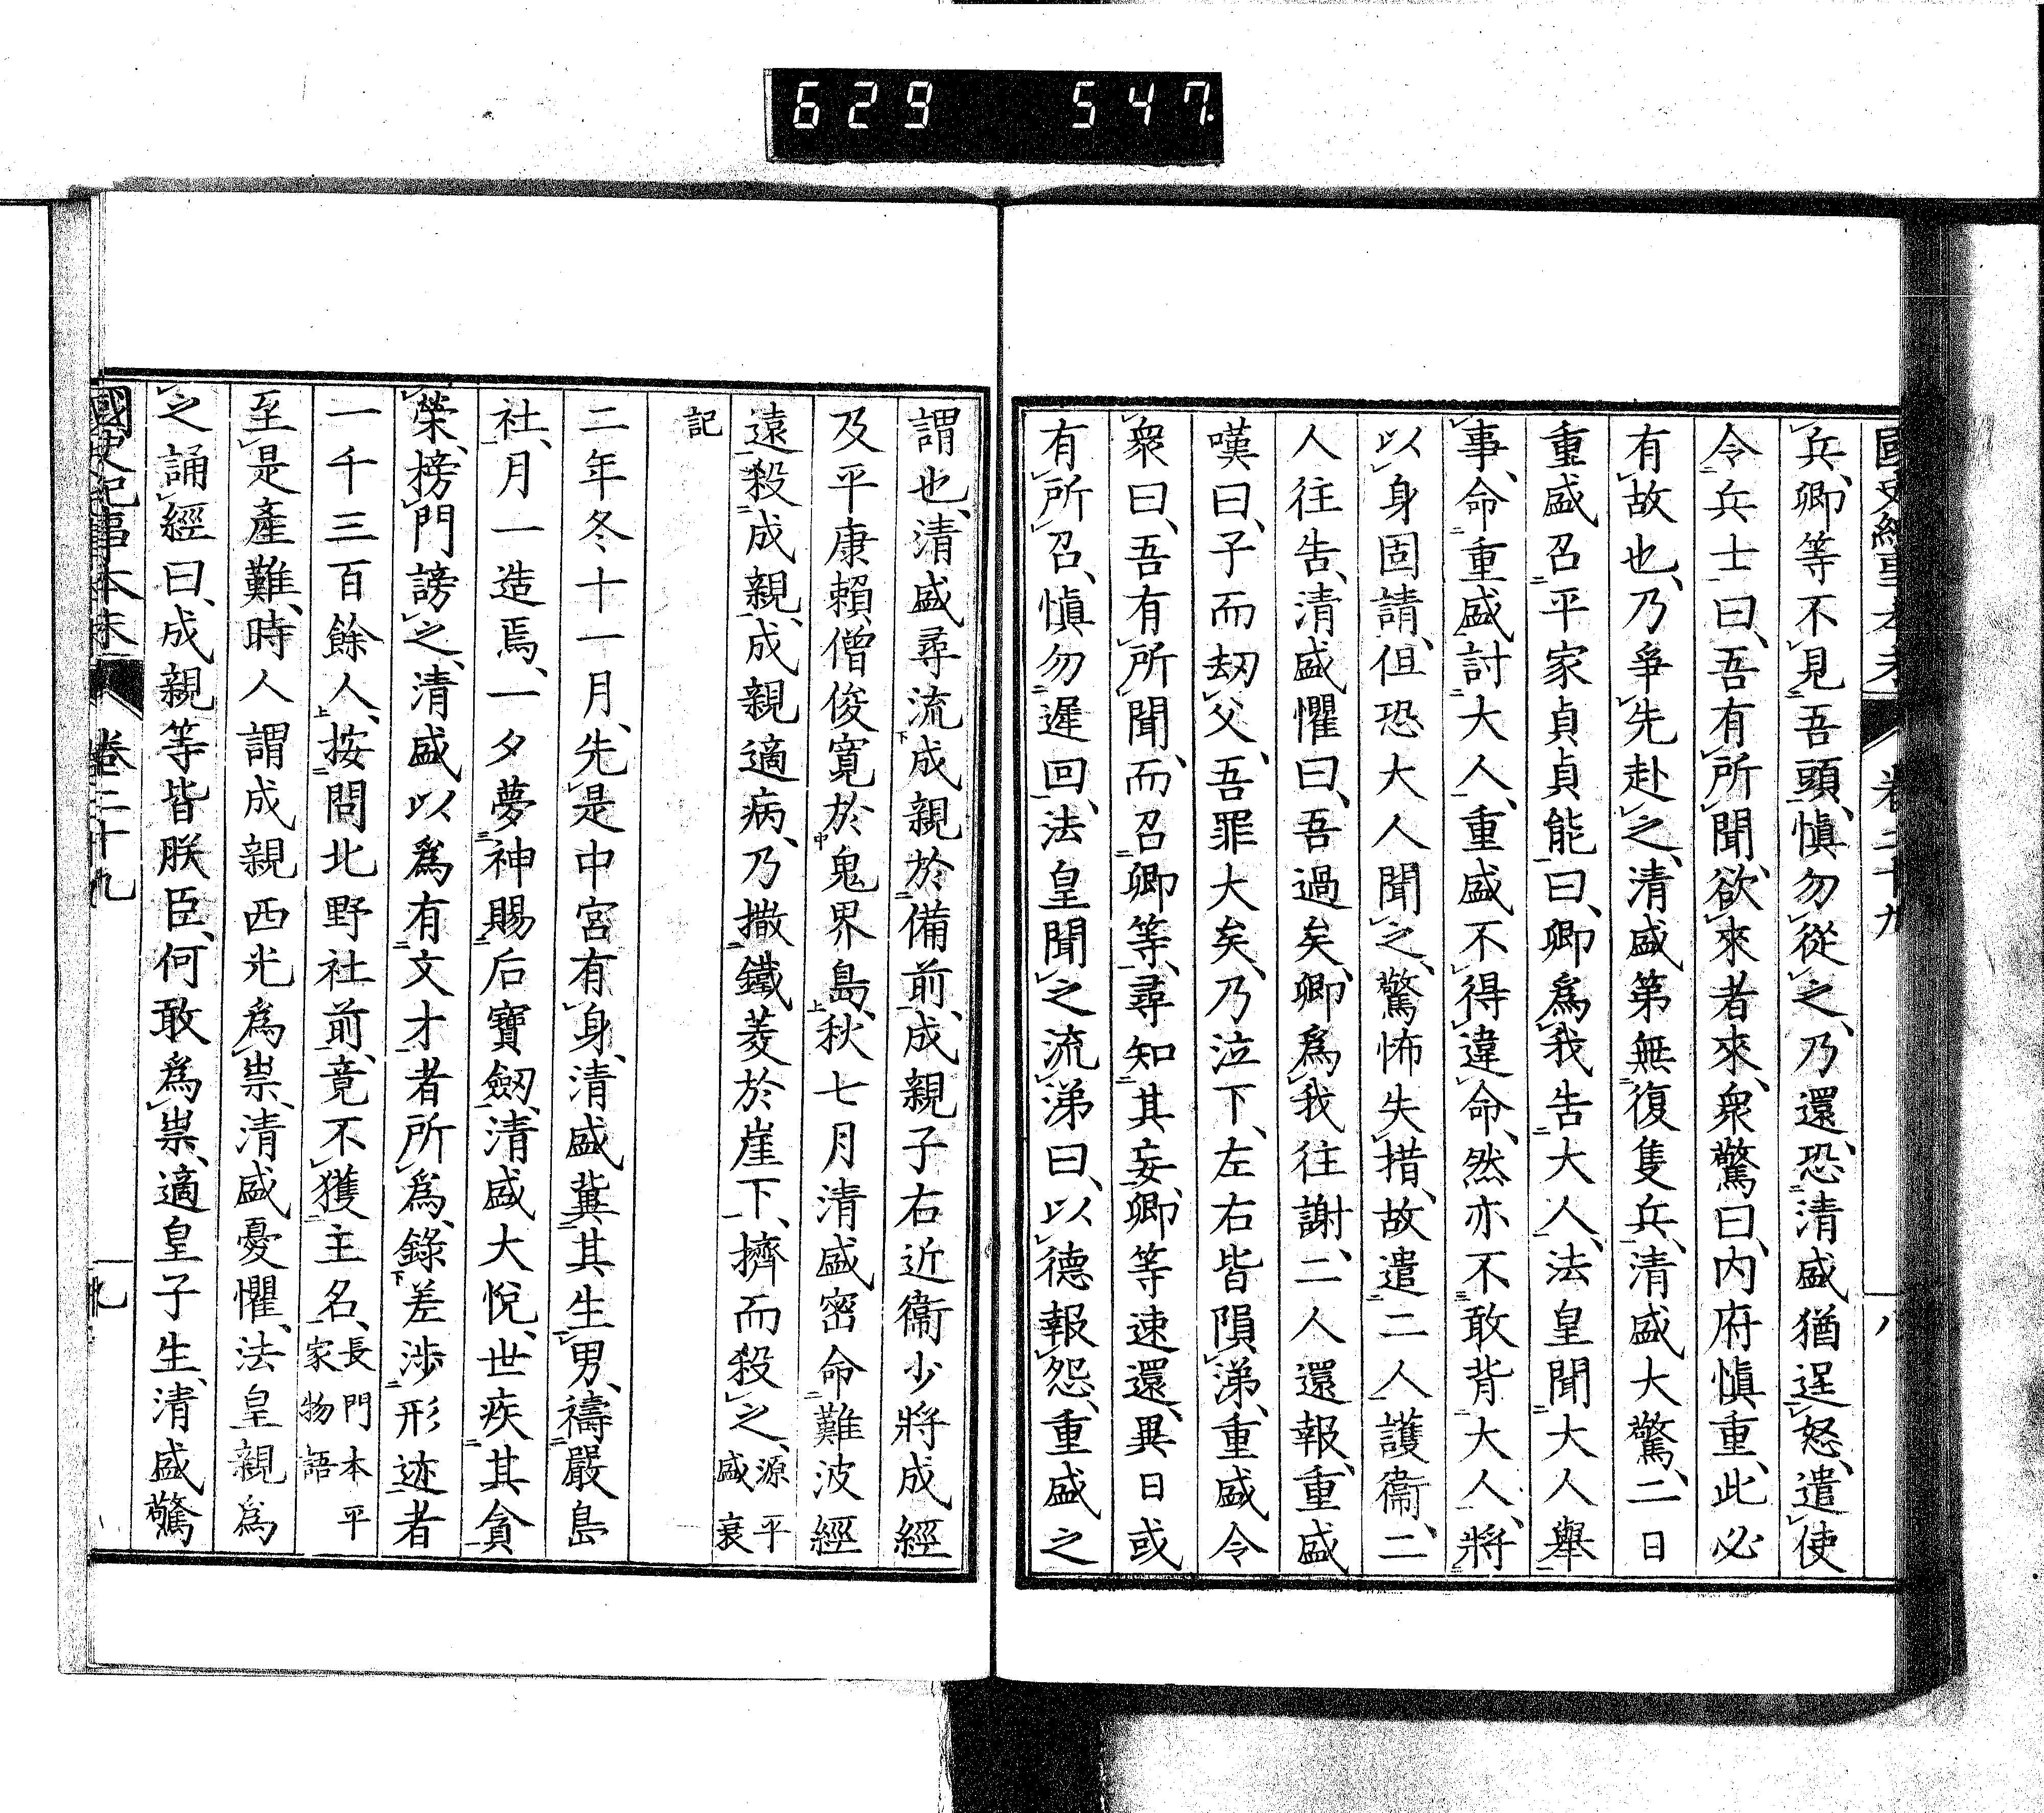 629 547.
國史紀事本末 卷二十九 八
兵、卿等不見吾頭、愼勿從之、乃還、恐淸盛猶逞怒、遣使
令兵士曰、吾有所聞、欲來者來、衆驚曰、內府愼重、此必
有故也、乃爭先赴之、淸盛第無復隻兵、淸盛大驚、二日
重盛召平家貞貞能曰、卿爲我告大人、法皇聞大人擧
事、命重盛討大人、重盛不得違命、然亦不敢背大人、將
以身固請、但恐大人聞之、驚怖失措、故遣二人護衞、二
人往告、淸盛懼曰、吾過矣、卿爲我往謝、二人還報、重盛
嘆曰、子而劫父、吾罪大矣、乃泣下、左右皆隕涕、重盛令
衆曰、吾有所聞、而召卿等、尋知其妄、卿等速還、異日或
有所召、愼勿遲回、法皇聞之流涕曰、以德報怨、重盛之
謂也、淸盛尋流成親於備前、成親子右近衞少將成經
及平康賴僧俊寬於鬼界島、秋七月淸盛密命難波經
遠殺成親、成親適病、乃撒鐵菱於崖下、擠而殺之、源平盛衰
記
二年冬十一月、先是中宮有身、淸盛冀其生男、禱嚴島
社、月一造焉、一夕夢神賜后寶劔、淸盛大悅、世疾其貪
榮、榜門謗之、淸盛以爲有文才者所爲、錄差涉形迹者
一千三百餘人、按問北野社前、竟不獲主名、長門本平家物語
至是產難、時人謂成親西光爲祟、淸盛憂懼、法皇親爲
之誦經曰、成親等皆朕臣、何敢爲祟、適皇子生、淸盛驚
國史紀事本末 卷二十九 九